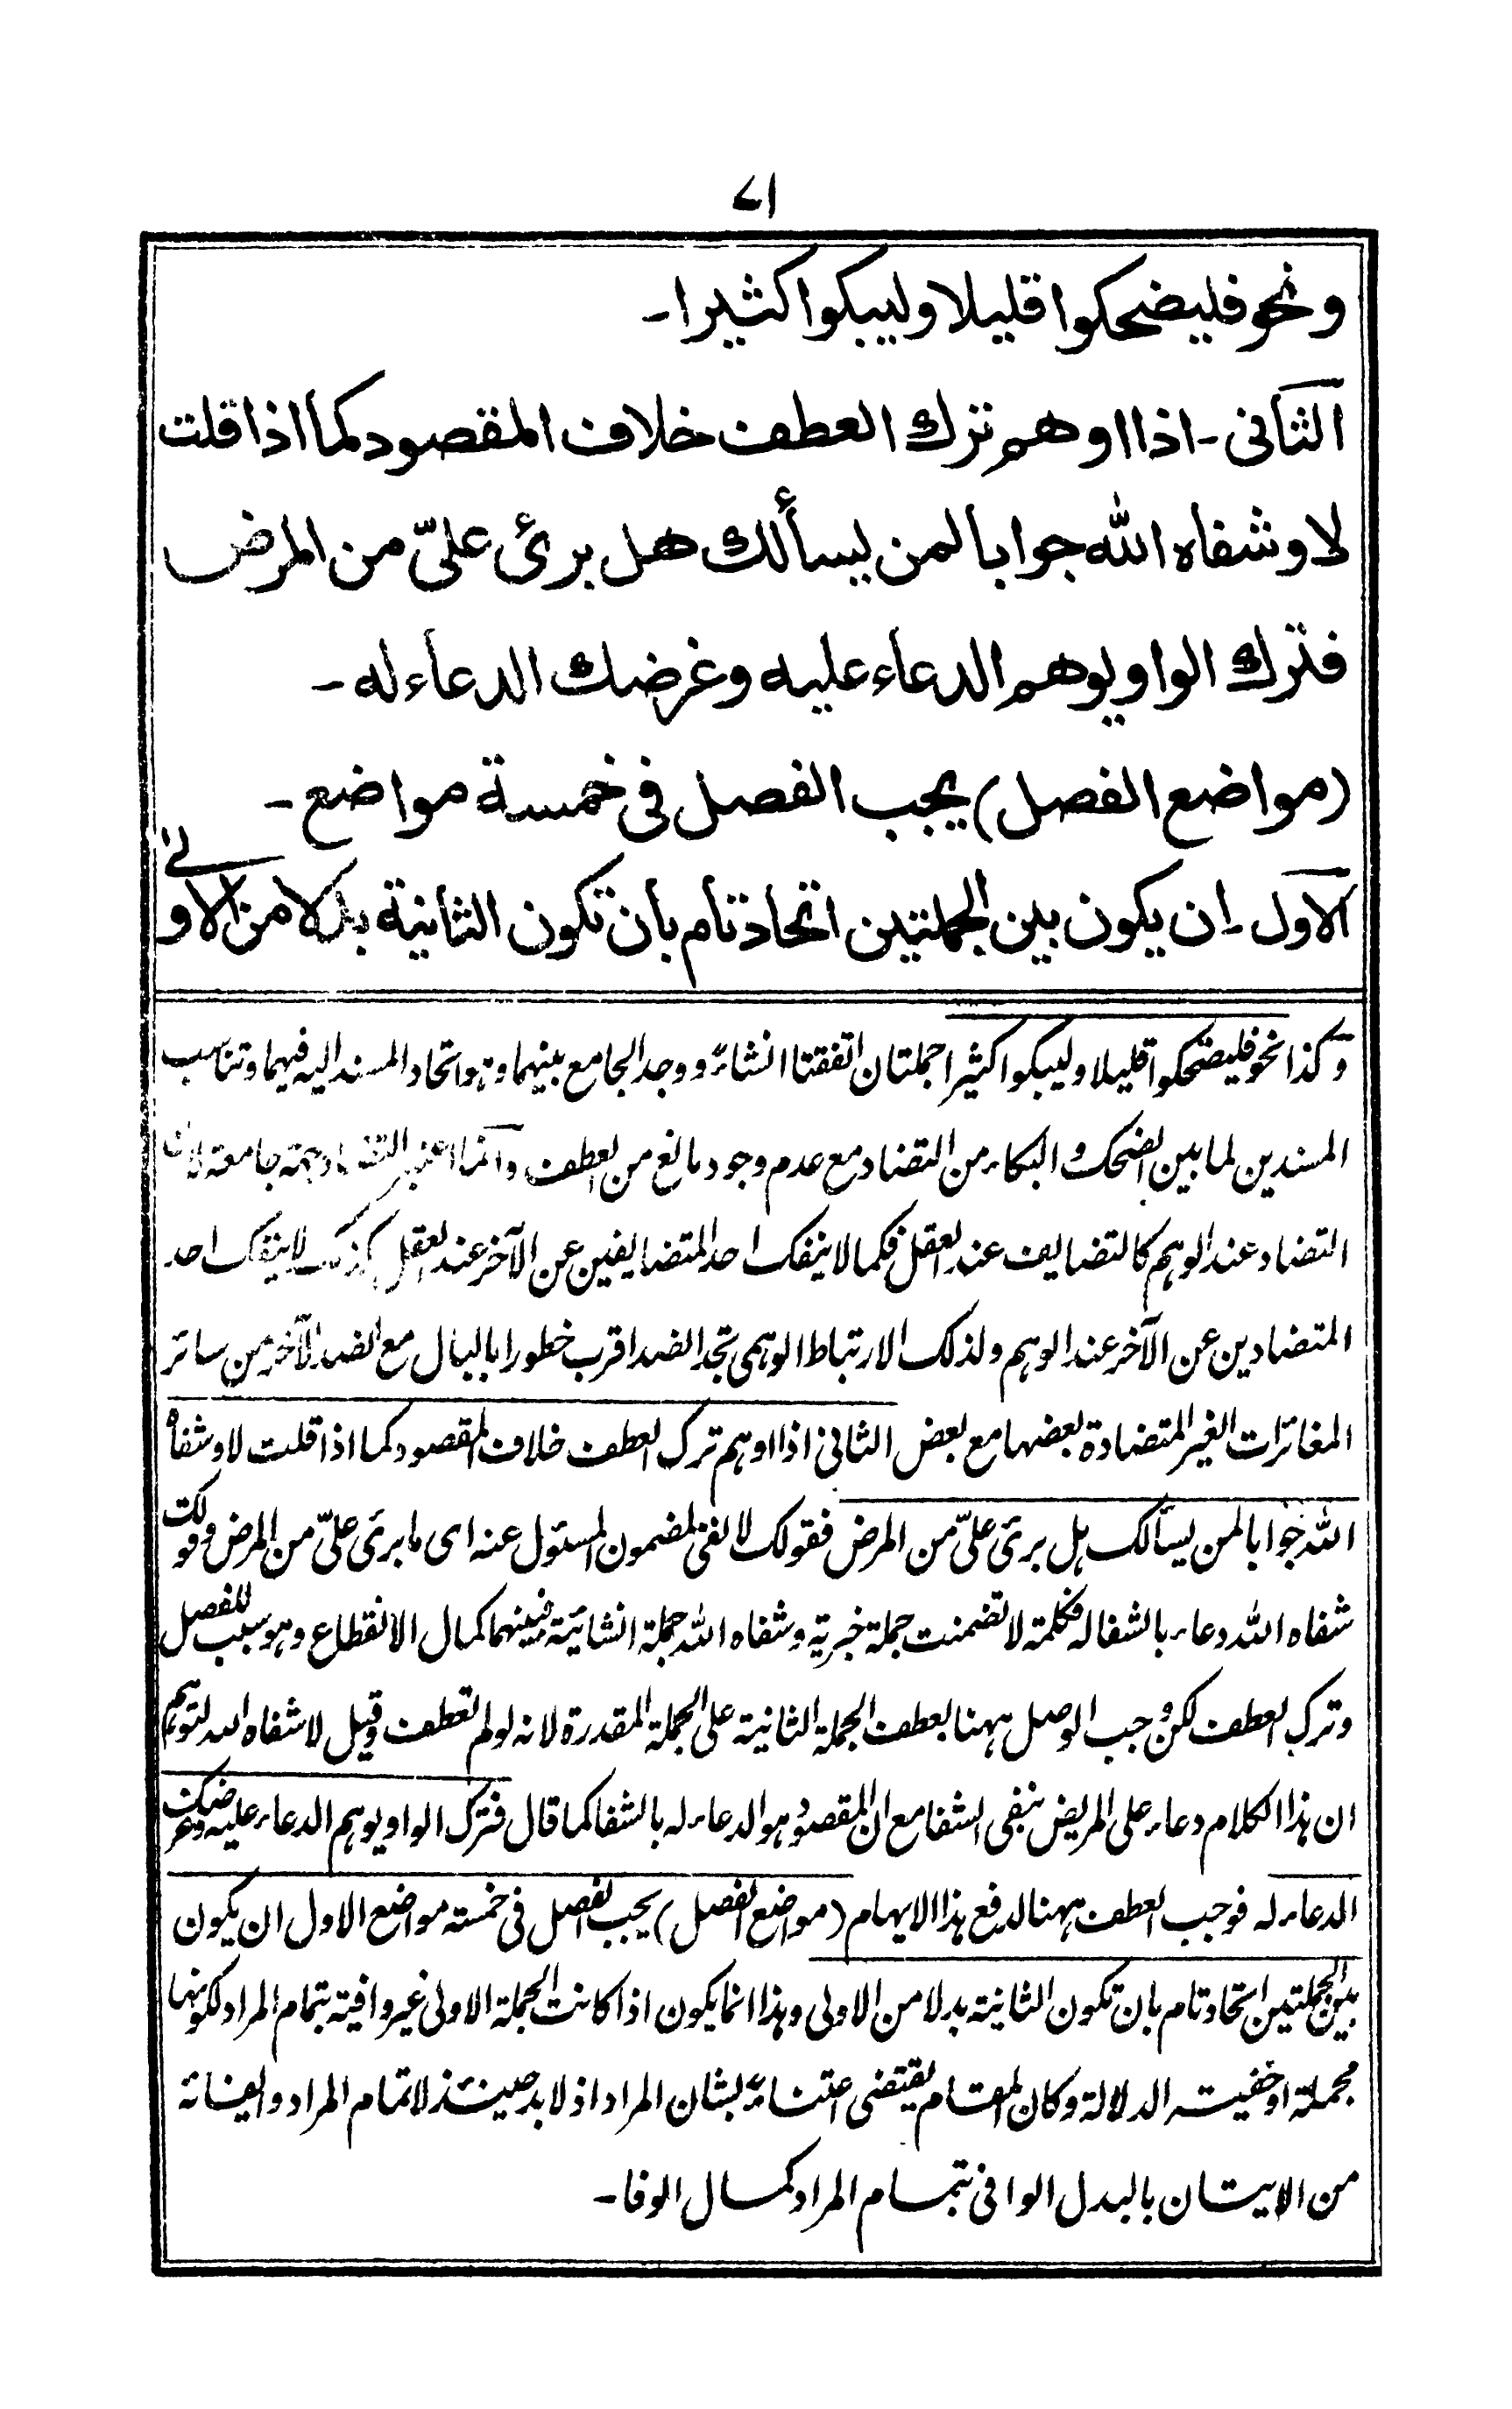 ٧١
ونحو فليضحكوا قليلا وليبكوا كثيرا-
الثانى- اذا اوهم ترك العطف خلاف المقصود كما اذا قلت
لا وشفاه الله جوابا لمن يسألك هل برئ علىّ من المرض
فترك الواو يوهم الدعاء عليه وغرضك الدعاء له-
(مواضع الفصل) يجب الفصل فى خمسة مواضع-
الاول- ان يكون بين الجملتين اتحاد تام بان تكون الثانية بدلا من الاولىٰ
وكذا نحو فليضحكوا قليلا وليبكوا كثيرا جملتان اتفقتا انشاءً ووجد الجامع بينهما وهو اتحاد المسند اليه فيهما وتناسب
المسندين لما بين الضحك والبكاء من التضاد مع عدم وجود مانع من العطف وانما اعتبر التضاد جهة جامعة لان
التضاد عند الوهم كالتضايف عند العقل فكما لا ينفك احد المتضايفين عن الآخر عند العقل كذلك لا ينفك احد
المتضادين عن الآخر عند الوهم ولذلك الارتباط الوهمى تجد الضد اقرب خطورا بالبال مع الضد الآخر من سائر
المغائرات الغير المتضادة بعضها مع بعض الثانى اذا اوهم ترك العطف خلاف المقصود كما اذا قلت لا وشفاه
الله جوابا لمن يسألك هل برئ علىّ من المرض فقولك لا نفى لمضمون المسئول عنه اى ما برئ علىّ من المرض وقولك
شفاه الله دعاء بالشفا له فكلمة لا تضمنت جملة خبرية وشفاه الله جملة انشائية فبينهما كمال الانقطاع وهو سبب للفصل
وترك العطف لكن وجب الوصل ههنا بعطف الجملة الثانية على الجملة المقدرة لانه لو لم تعطف وقيل لا شفاه الله لتوهم
ان هذا الكلام دعاء على المريض بنفى الشفا مع ان المقصود هو الدعاء له بالشفا كما قال فترك الواو يوهم الدعاء عليه وغرضك
الدعاء له فوجب العطف ههنا لدفع هذا الايهام (مواضع الفصل) يجب الفصل فى خمسة مواضع الاول ان يكون
بين الجملتين اتحاد تام بان تكون الثانية بدلا من الاولى وهذا انما يكون اذا كانت الجملة الاولى غير وافية بتمام المراد لكونها
مجملة او خفية الدلالة وكان المقام يقتضى اعتناءً بشان المراد اذ لابد حينئذ لاتمام المراد وايفائه
من الايتان بالبدل الوافى بتمام المراد كمال الوفا-